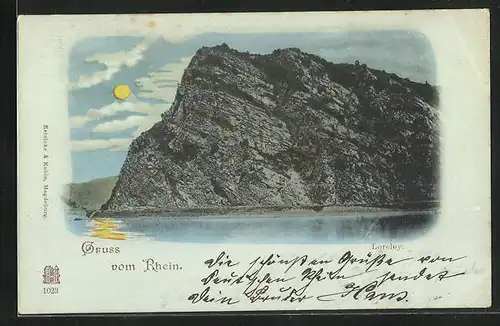 Reinicke & Rubin, Magdeburg.
Loreley.
Gruss
vom Rhein.
1023
Die schönsten Grüße von
deutschen Rhein sendet
Dein Bruder Hans.